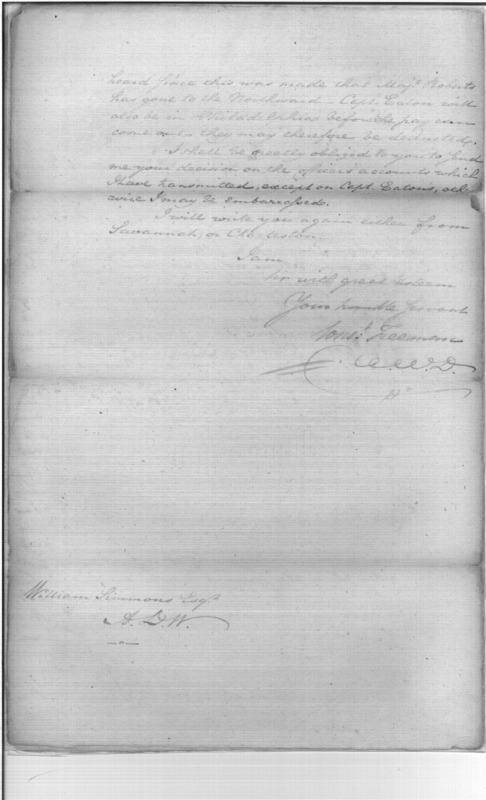 heard since this was made that Majr. Roberts
has gone to the Northward - Capt. Eaton will
also be in Philadelphia before the pay can
come out - they may therefore be deducted.
I shall be greatly obliged to you to send
me your decision on the officers accounts which
I have transmitted, except on Capt. Eatons, other
wise I may be embarrassed.
I will write you again either from
Savannah, or Charleston
I am
Sir with great esteem
Your humble servant
Const. Freeman
A. W. D.
William Simmons Esqr.
A. D. W.